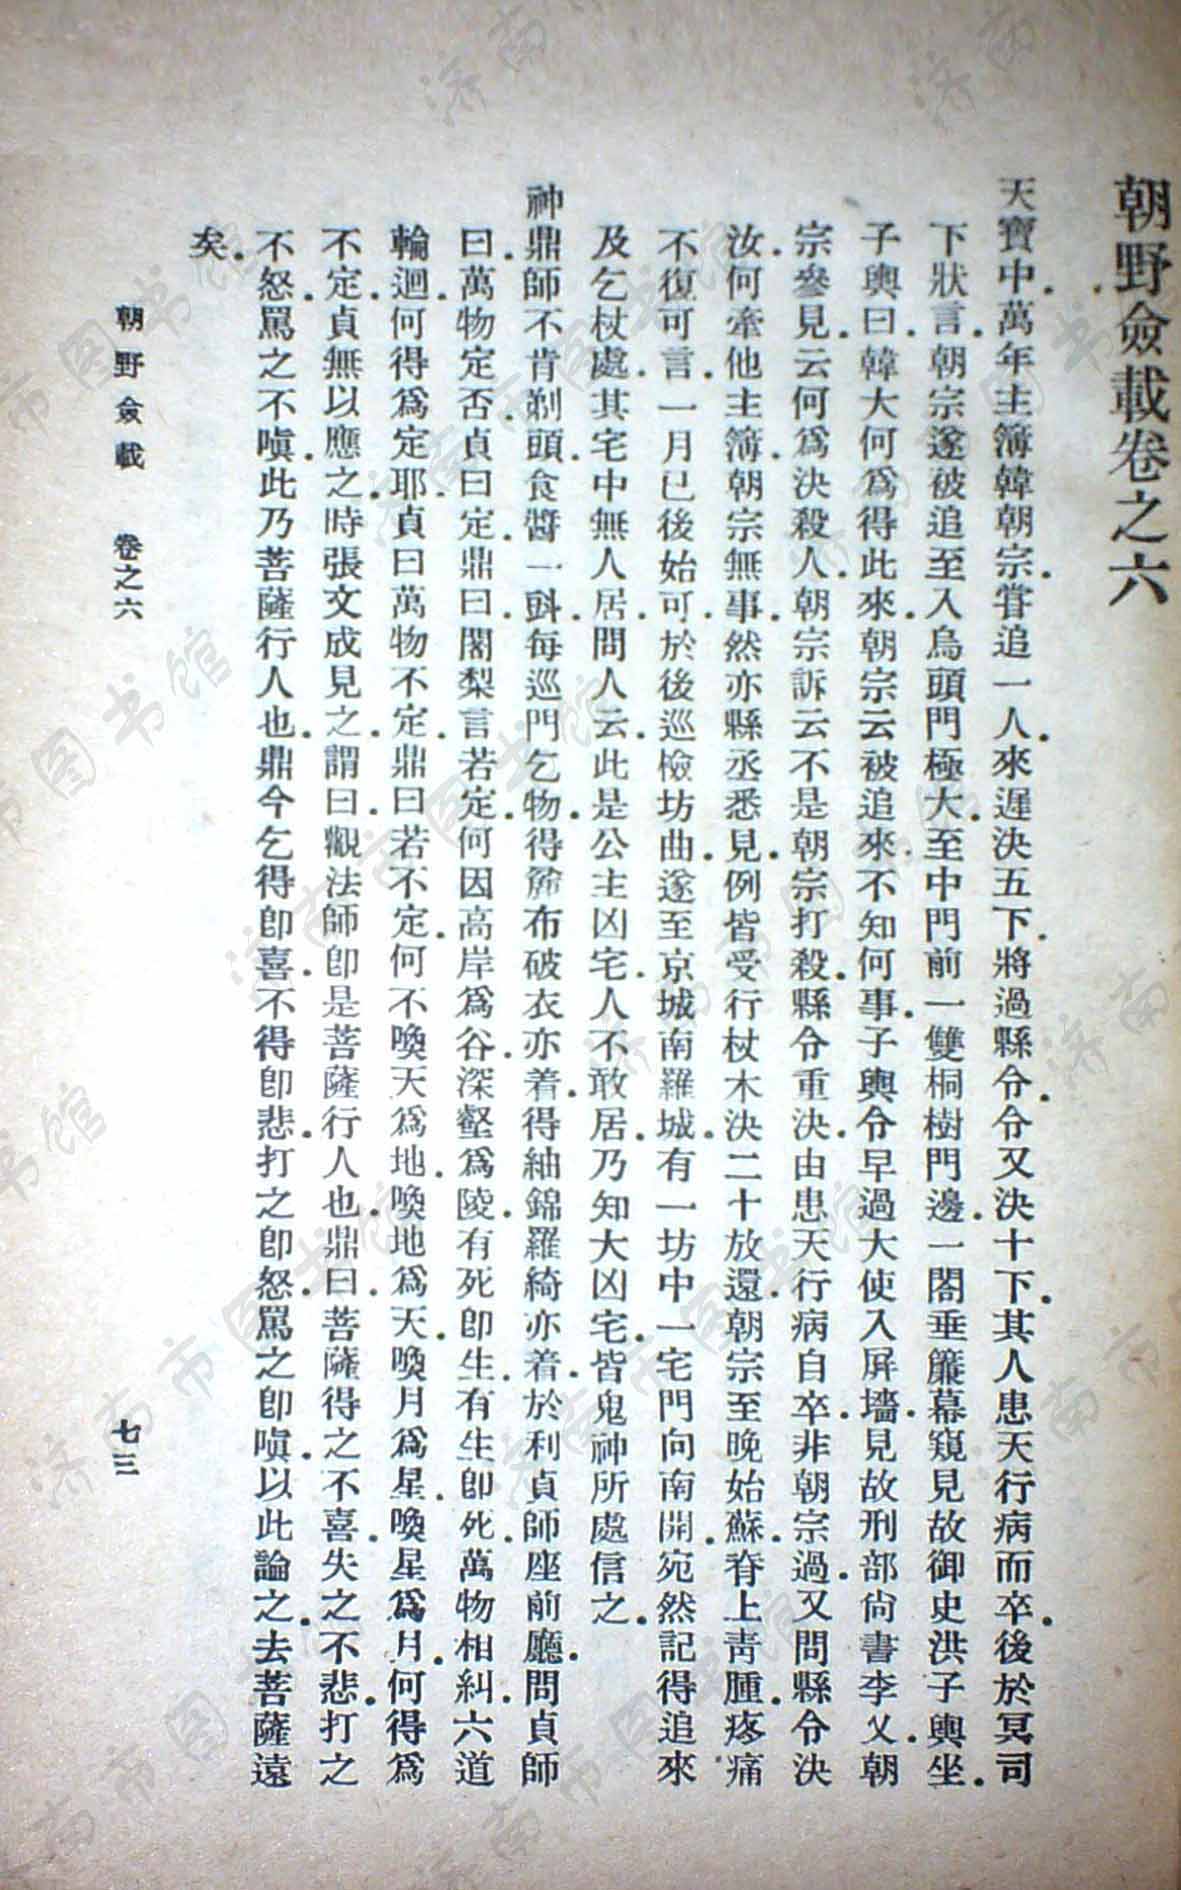 朝野僉載卷之六
天寶中．萬年主簿韓朝宗．嘗追一人．來遲決五下．將過縣令．令又決十下．其人患天行病而卒．後於冥司
下狀言．朝宗遂被追至．入烏頭門極大．至中門前一雙桐樹．門邊一閣垂簾幕．窺見故御史洪子輿坐．
子輿曰．韓大何爲得此來．朝宗云．被追來．不知何事．子輿令早過大使．入屏墻．見故刑部尙書李乂．朝
宗參見．云何爲決殺人．朝宗訴云．不是朝宗打殺．縣令重決．由患天行病自卒．非朝宗過．又問縣令決
汝．何牽他主簿．朝宗無事．然亦縣丞悉見．例皆受行杖．木決二十放還．朝宗至晚始蘇．脊上靑腫．疼痛
不復可言．一月已後始可．於後巡檢坊曲．遂至京城南羅城．有一坊中一宅門向南開．宛然記得追來
及乞杖處．其宅中無人居．問人云．此是公主凶宅．人不敢居．乃知大凶宅．皆鬼神所處信之．
神鼎師不肯剃頭．食醬一㪷．每巡門乞物．得麄布破衣亦着．得紬錦羅綺亦着．於利貞師座前廳．問貞師
曰．萬物定否．貞曰定．鼎曰．闍梨言若定．何因高岸爲谷．深壑爲陵．有死卽生．有生卽死．萬物相糾．六道
輪迴．何得爲定耶．貞曰萬物不定．鼎曰若不定．何不喚天爲地．喚地爲天．喚月爲星．喚星爲月．何得爲
不定．貞無以應之．時張文成見之．謂曰．觀法師卽是菩薩行人也．鼎曰．菩薩得之不喜．失之不悲．打之
不怒．罵之不嗔．此乃菩薩行人也．鼎今乞得卽喜．不得卽悲．打之卽怒．罵之卽嗔．以此論之．去菩薩遠
矣．
朝野僉載 卷之六 七三
济南市图书馆